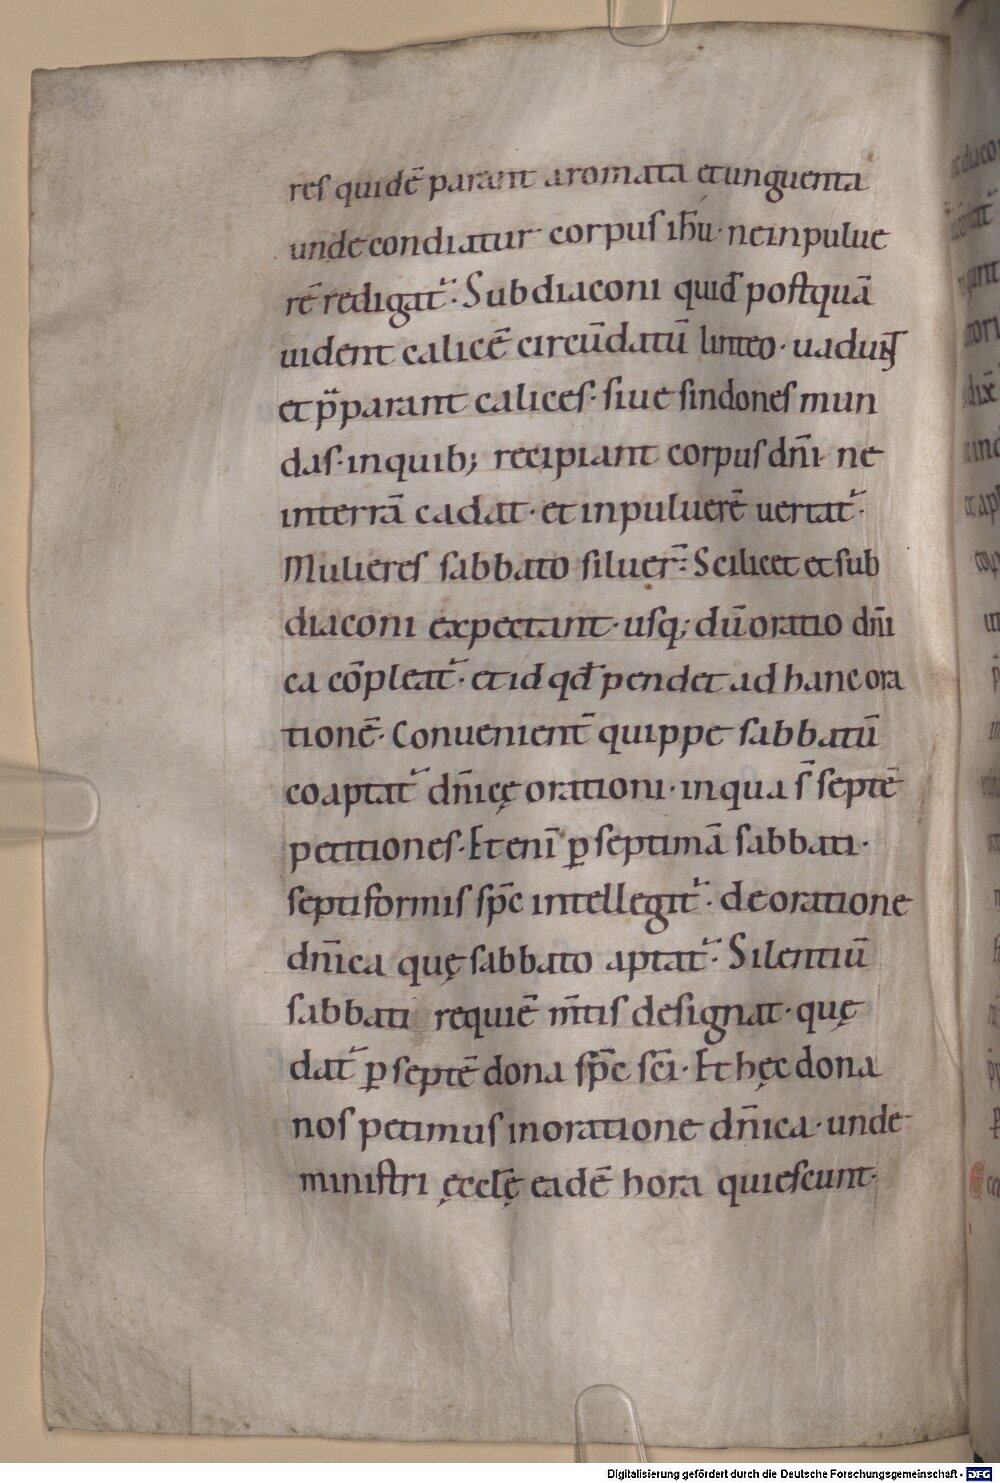 res quidē parant aromata et unguenta
unde condiatur corpus ih̄u · ne in pulue
rē redigat᷑ · Subdiaconi quid̄ postquā
uident calicē circūdatū linteo · uadunt
et p̄parant calices · siue sindones mun
das · in quib; recipiant corpus dn̄i ne
in terrā cadat · et in puluerē uertat᷑ ·
Mulieres sabbato siluer̄ · Scilicet et sub
diaconi expectant · usq; dū oratio dn̄i
ca cōpleat᷑ · et id qd̄ pendet ad hanc ora
tionē · Conuenient̄ quippe sabbatū
coaptat᷑ dn̄icę orationi · in qua s̄ septē
petitiones · Et enī ꝑ septimā sabbati ·
septiformis sp̄c intellegit᷑ · de oratione
dn̄ica quę sabbato aptat᷑ · Silentiū
sabbati requiē m̄tis designat · quę
dat᷑ ꝑ septē dona sp̄c sc̄i · Et hęc dona
nos petimus in oratione dn̄ica · unde
ministri ęccl̄ę eadē hora quiescunt ·
Digitalisierung gefördert durch die Deutsche Forschungsgemeinschaft - DFG